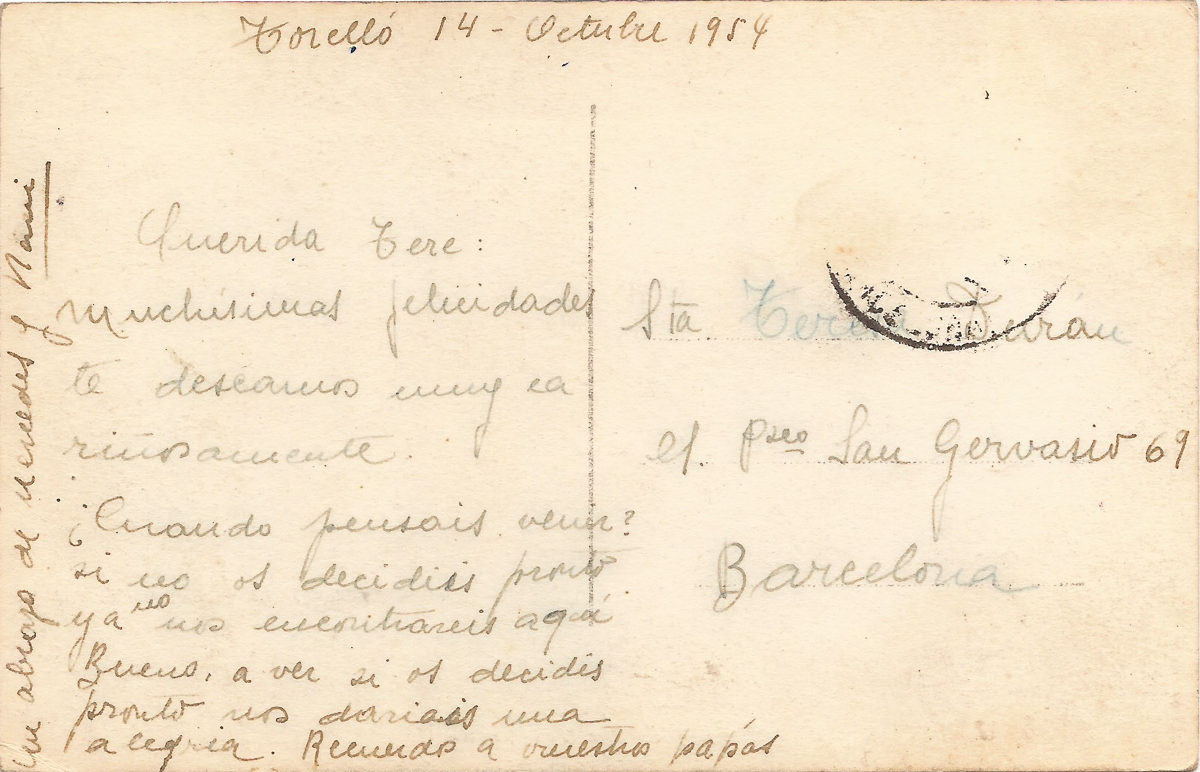 Torelló 14 - Octubre 1954
Querida Tere:
muchísimas felicidades
te deseamos muy ca
riñosamente.
¿Cuando pensais venir?
si no os decidis pronto
ya no nos encontrareis aquí
Bueno, a ver si os decidis
pronto nos dariais una
alegria. Recuerdos a vuestros papás
Un abrazo de Mercedes y
Sta Teresa Durán
Pseo San Gervasio 69
Barcelona